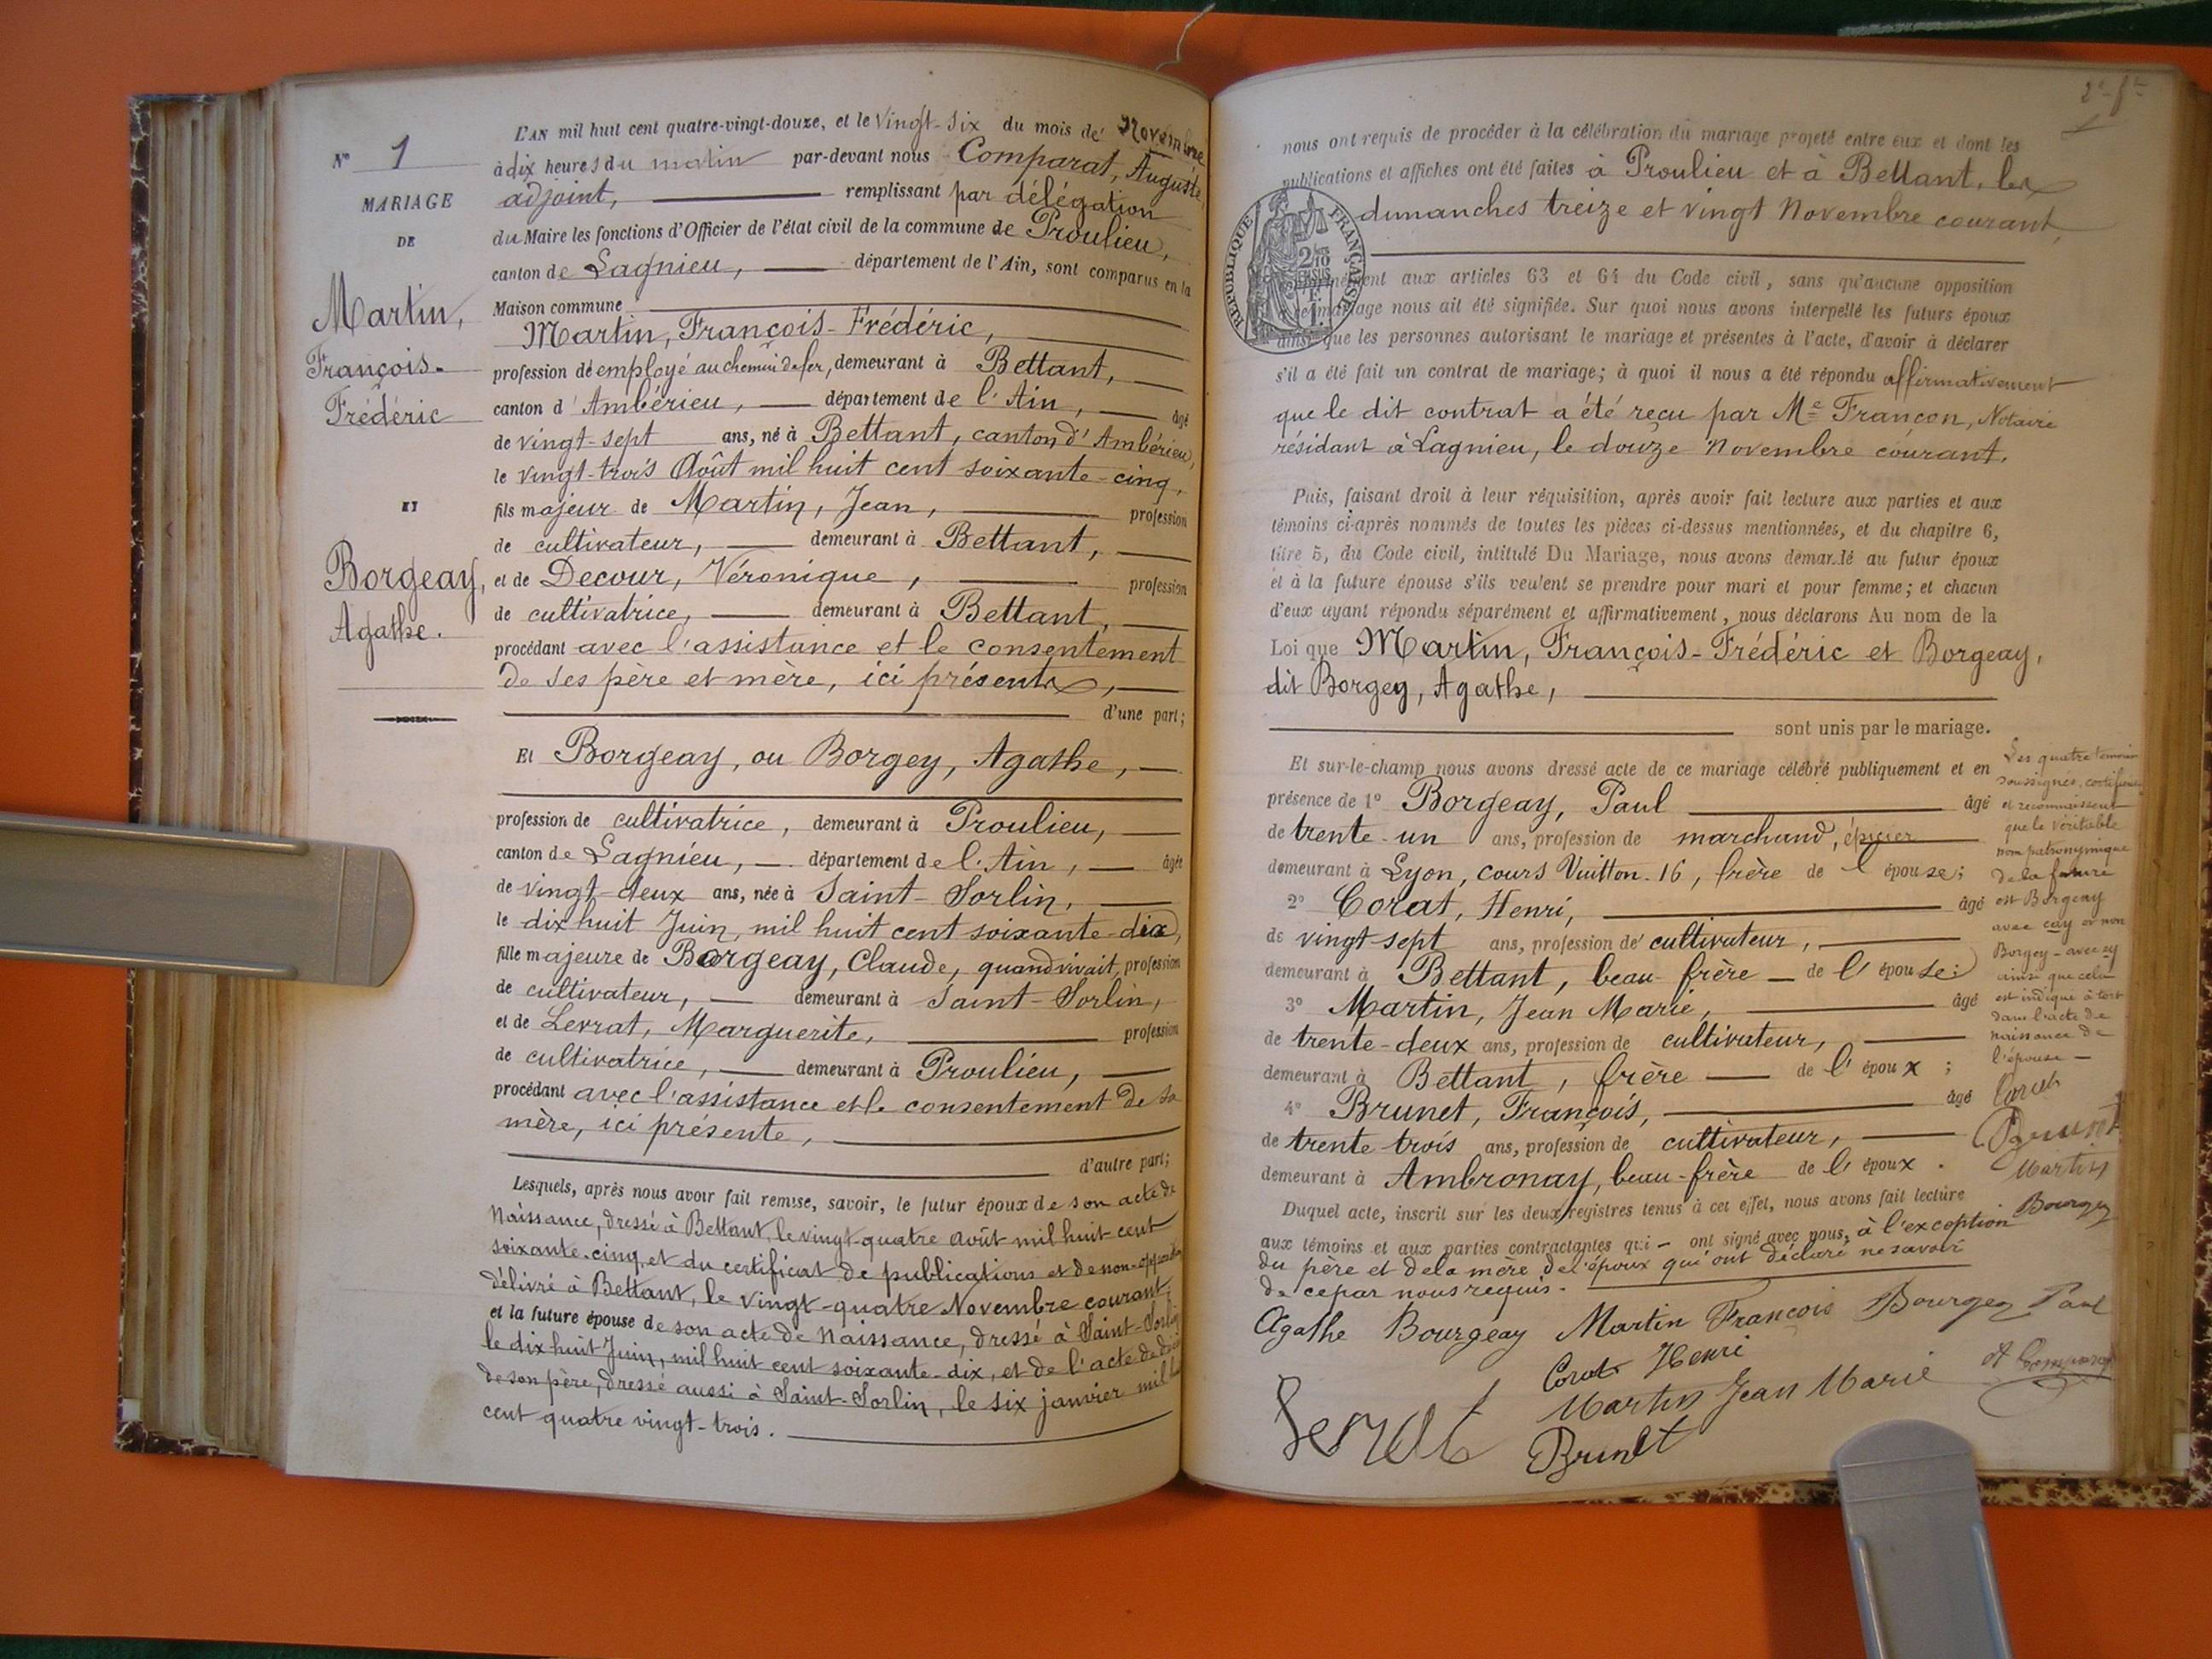 N° 1
MARIAGE
DE
Martin,
François-
Frédéric
ET
Borgeay,
Agathe.
L'AN mil huit cent quatre-vingt-douze, et le Vingt-six du mois de Novembre
à dix heures du matin par-devant nous Comparat, Auguste,
adjoint, remplissant par délégation
du Maire les fonctions d'Officier de l'état civil de la commune de Proulieu,
canton de Lagnieu, département de l'Ain, sont comparus en la
Maison commune
Martin, François-Frédéric,
profession d'employé au chemin de fer, demeurant à Bettant,
canton d'Ambérieu, département de l'Ain, âgé
de vingt-sept ans, né à Bettant, canton d'Ambérieu,
le vingt-trois Août mil huit cent soixante-cinq,
fils majeur de Martin, Jean, profession
de cultivateur, demeurant à Bettant,
et de Decour, Véronique, profession
de cultivatrice, demeurant à Bettant,
procédant avec l'assistance et le consentement
de ses père et mère, ici présents,
d'une part;
Et Borgeay, ou Borgey, Agathe,
profession de cultivatrice, demeurant à Proulieu,
canton de Lagnieu, département de l'Ain, âgée
de vingt-deux ans, née à Saint-Sorlin,
le dix huit Juin, mil huit cent soixante-dix,
fille majeure de Borgeay, Claude, quand vivait, profession
de cultivateur, demeurant à Saint-Sorlin,
et de Levrat, Marguerite, profession
de cultivatrice, demeurant à Proulieu,
procédant avec l'assistance et le consentement de sa
mère, ici présente,
d'autre part;
Lesquels, après nous avoir fait remise, savoir, le futur époux de son acte de
Naissance, dressé à Bettant, le vingt-quatre Août mil huit cent
soixante-cinq, et du certificat de publications et de non-opposition
délivré à Bettant, le vingt-quatre Novembre courant,
et la future épouse de son acte de Naissance, dressé à Saint-Sorlin
le dix huit Juin, mil huit cent soixante-dix, et de l'acte de décès
de son père, dressé aussi à Saint-Sorlin, le six janvier mil huit
cent quatre vingt-trois.
nous ont requis de procéder à la célébration du mariage projeté entre eux et dont les
publications et affiches ont été faites à Proulieu et à Bettant, les
dimanches treize et vingt Novembre courant,
REPUBLIQUE FRANÇAISE
2/10
EN SUS
1 F.
conformément aux articles 63 et 64 du Code civil, sans qu'aucune opposition
au dit mariage nous ait été signifiée. Sur quoi nous avons interpellé les futurs époux
ainsi que les personnes autorisant le mariage et présentes à l'acte, d'avoir à déclarer
s'il a été fait un contrat de mariage; à quoi il nous a été répondu affirmativement
que le dit contrat a été reçu par Me Françon, Notaire
résidant à Lagnieu, le douze Novembre courant.
Puis, faisant droit à leur réquisition, après avoir fait lecture aux parties et aux
témoins ci-après nommés de toutes les pièces ci-dessus mentionnées, et du chapitre 6,
titre 5, du Code civil, intitulé Du Mariage, nous avons demandé au futur époux
et à la future épouse s'ils veulent se prendre pour mari et pour femme; et chacun
d'eux ayant répondu séparément et affirmativement, nous déclarons Au nom de la
Loi que Martin, François-Frédéric et Borgeay,
dit Borgey, Agathe,
sont unis par le mariage.
Et sur-le-champ nous avons dressé acte de ce mariage célébré publiquement et en
présence de 1° Borgeay, Paul âgé
de trente-un ans, profession de marchand, épicier
demeurant à Lyon, cours Vuitton 16, frère de l'épouse;
2° Corat, Henri, âgé
de vingt sept ans, profession de cultivateur,
demeurant à Bettant, beau-frère de l'épouse;
3° Martin, Jean Marie, âgé
de trente-deux ans, profession de cultivateur,
demeurant à Bettant, frère de l'époux;
4° Brunet, François, âgé
de trente trois ans, profession de cultivateur,
demeurant à Ambronay, beau-frère de l'époux.
Duquel acte, inscrit sur les deux registres tenus à cet effet, nous avons fait lecture
aux témoins et aux parties contractantes qui ont signé avec nous, à l'exception
du père et de la mère de l'époux qui ont déclaré ne savoir
de ce par nous requis.
Les quatre témoins
soussignés, certifient
et reconnaissent
que le véritable
nom patronymique
de la future
est Borgeay
avec eay et non
Borgey - avec ey
ainsi que cela
est indiqué à tort
dans l'acte de
naissance de
l'épouse
Corat
Brunet
Martin
Bourgey
Agathe Bourgeay Martin François Bourgey Paul
Corat Henri
A Comparat
Martin Jean Marie
Levrat
Brunet